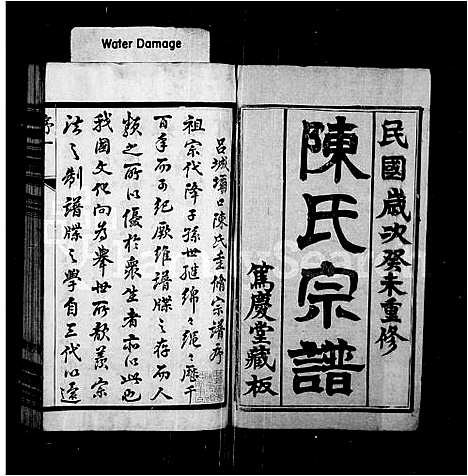 Water Damage
民國歲次癸未重修
陳氏宗譜
篤慶堂藏板
呂城壩口陳氏重修宗譜序
祖宗代降子孫世繼綿々繩々歷千
百年而可紀厥維譜牒之存而人
類之所以優於衆生者亦以此也
我國文化向為舉世所欽羨宗
法之制譜牒之學自三代以還
序一